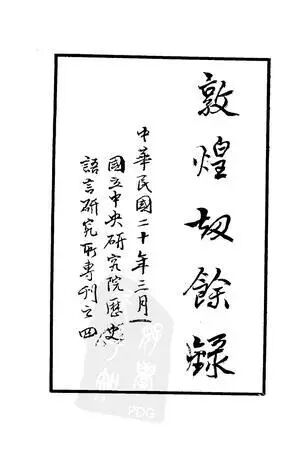 敦煌劫餘錄
中華民國二十年三月
國立中央研究院歷史
語言研究所專刊之四
PDG